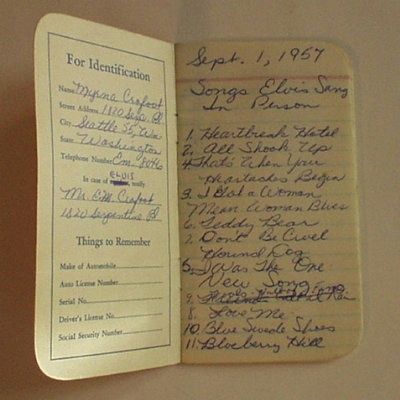 For Identification
Name Myrna Crafoot
Street Address 1820 Serp. Pl
City Seattle 55, Wn
State Washington
Telephone Number Em. 8046
ELVIS
In case of notify
Mr. C.M. Crafoot
1820 Serpentine Pl
Things to Remember
Make of Automobile
Auto License Number
Serial No.
Driver's License No.
Social Security Number
Sept. 1, 1957
Songs Elvis Sang
In Person
1. Heartbreak Hotel
2. All Shook Up
4. That's When Your
Heartaches Begin
3. I Got a Woman
Mean Woman Blues
6. Teddy Bear
7. Don't Be Cruel
Hound Dog
5. I Was The One
New Song
9.
8. Love Me
10. Blue Swede Shoes
11. Blueberry Hill